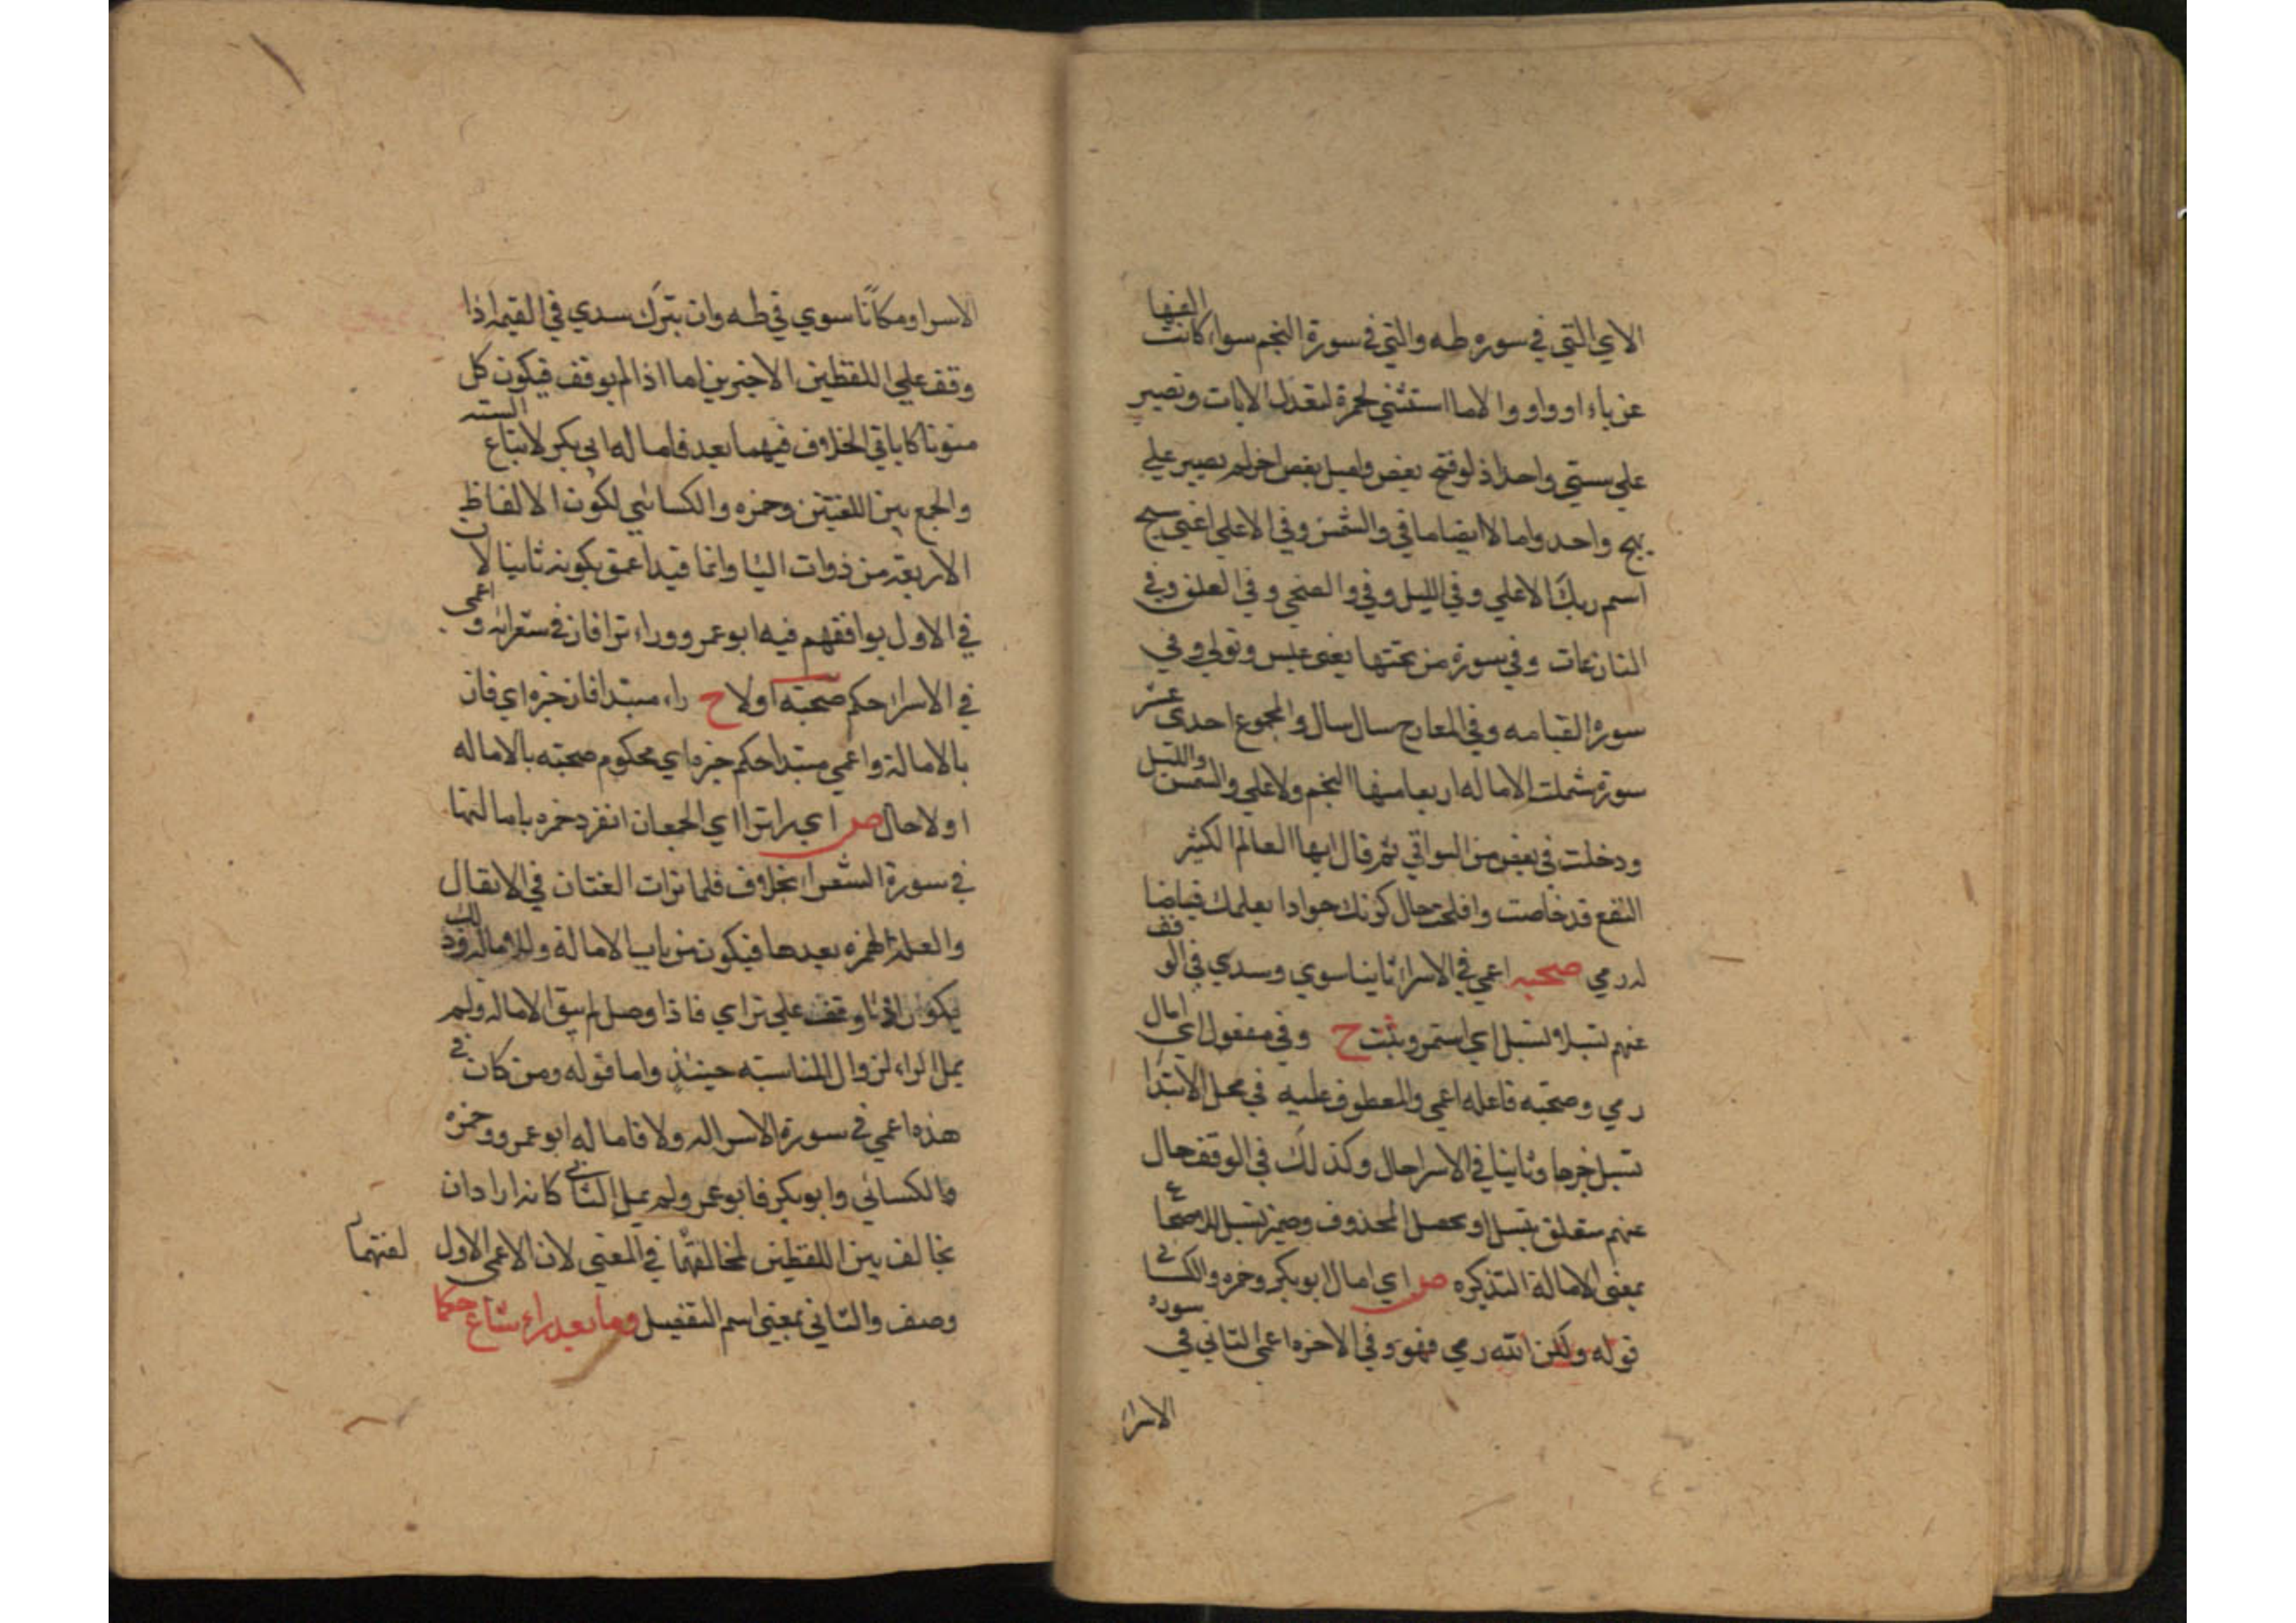 الاي التي في سوره طه والتي في سورة النجم سواء كانت الفها
عن ياء او واو والا ما استثني لحمزة لتعدل الايات وتصير
علي سستي واحد اذ لو فتح بعض واميل بعض اخر لم تصير علي
نهج واحد وامالا ايضا ما في والشمس وفي الاعلي اعني سبح
اسم ربك الاعلي وفي الليل وفي والضحي وفي العلق وفي
النازعات وفي سورة من تحتها يعني عبس وتولي وفي
سورة القيامه وفي المعارج سال سال والمجموع احدي عشر
سورة شملت الاماله اربعا منها النجم ولاعلي والشمس والليل
ودخلت في بعض من البواقي ثم قال ايها العالم الكثير
النفع قد خاصت وافلحت حال كونك جوادا بعلمك فياضا
له رمي صحبه اعمي في الاسراء ثانيا سوي وسدي في الوقف
عنهم تسبلا تسبل اي استمر وثبت ح وفي مفعول اي امال
رمي وصحبته فاعله اعمي والمعطوف عليه في محل الابتدا
تسبل خبرها وثانيا في الاسرا حال وكذلك في الوقف حال
عنهم متعلق بتسبل او بحصل المحذوف وضمير تسبل
بمعني الامالة التذكيره ص اي امال ابو بكر وحمزه والكسائي
قوله ولكن الله رمي فهو وفي الاخره اعمي الثاني في سوره
الاسراء
الاسرا ومكانا سوي في طه وان يترك سدي في القيمه اذا
وقف علي اللفظين الاخيرين اما اذا لم يوقف فيكون كل
منونا كاباقي الخلاف فيهما بعد فاماله ابي بكر لاتباع السنه
والجمع بين اللغتين وحمزه والكسائي لكون الالفاظ
الاربعة من ذوات اليا وانما قيد اعمي بكونه ثانيا لان
في الاول يوافقهم فيه ابو عمرو وراء تراا فاز في شعرائه و اعمي
في الاسرا حكم صحبته اولا ح راء مبتدا فاز خبره اي فاز
بالامالة واعمي مبتدا حكم خبره اي محكوم صحبته بالاماله
اولا حال ص اي را تراا اي الجمعان انفرد حمزه بامالتها
في سورة الشعراء بخلاف فلما تراات الفئتان في الانفال
والعلة الهمزه بعدها فيكون من باب الامالة
علي تراي فاذا وصل لم يبق الاماله ولم
يمل الراء لزوال المناسبته حينئذ واما قوله ومن كان في
هذه اعمي في سورة الاسرا اله ولا فاماله ابو عمرو وحمزه
والكسائي وابو بكر فابو عمر ولم يميل الثاني كانه اراد ان
يخالف بين اللفظين لمخالفتهما في المعني لان الاعمي الاول
وصف والثاني بمعني اسم التفضيل وما بعد راء شاع حكما
لغتهما